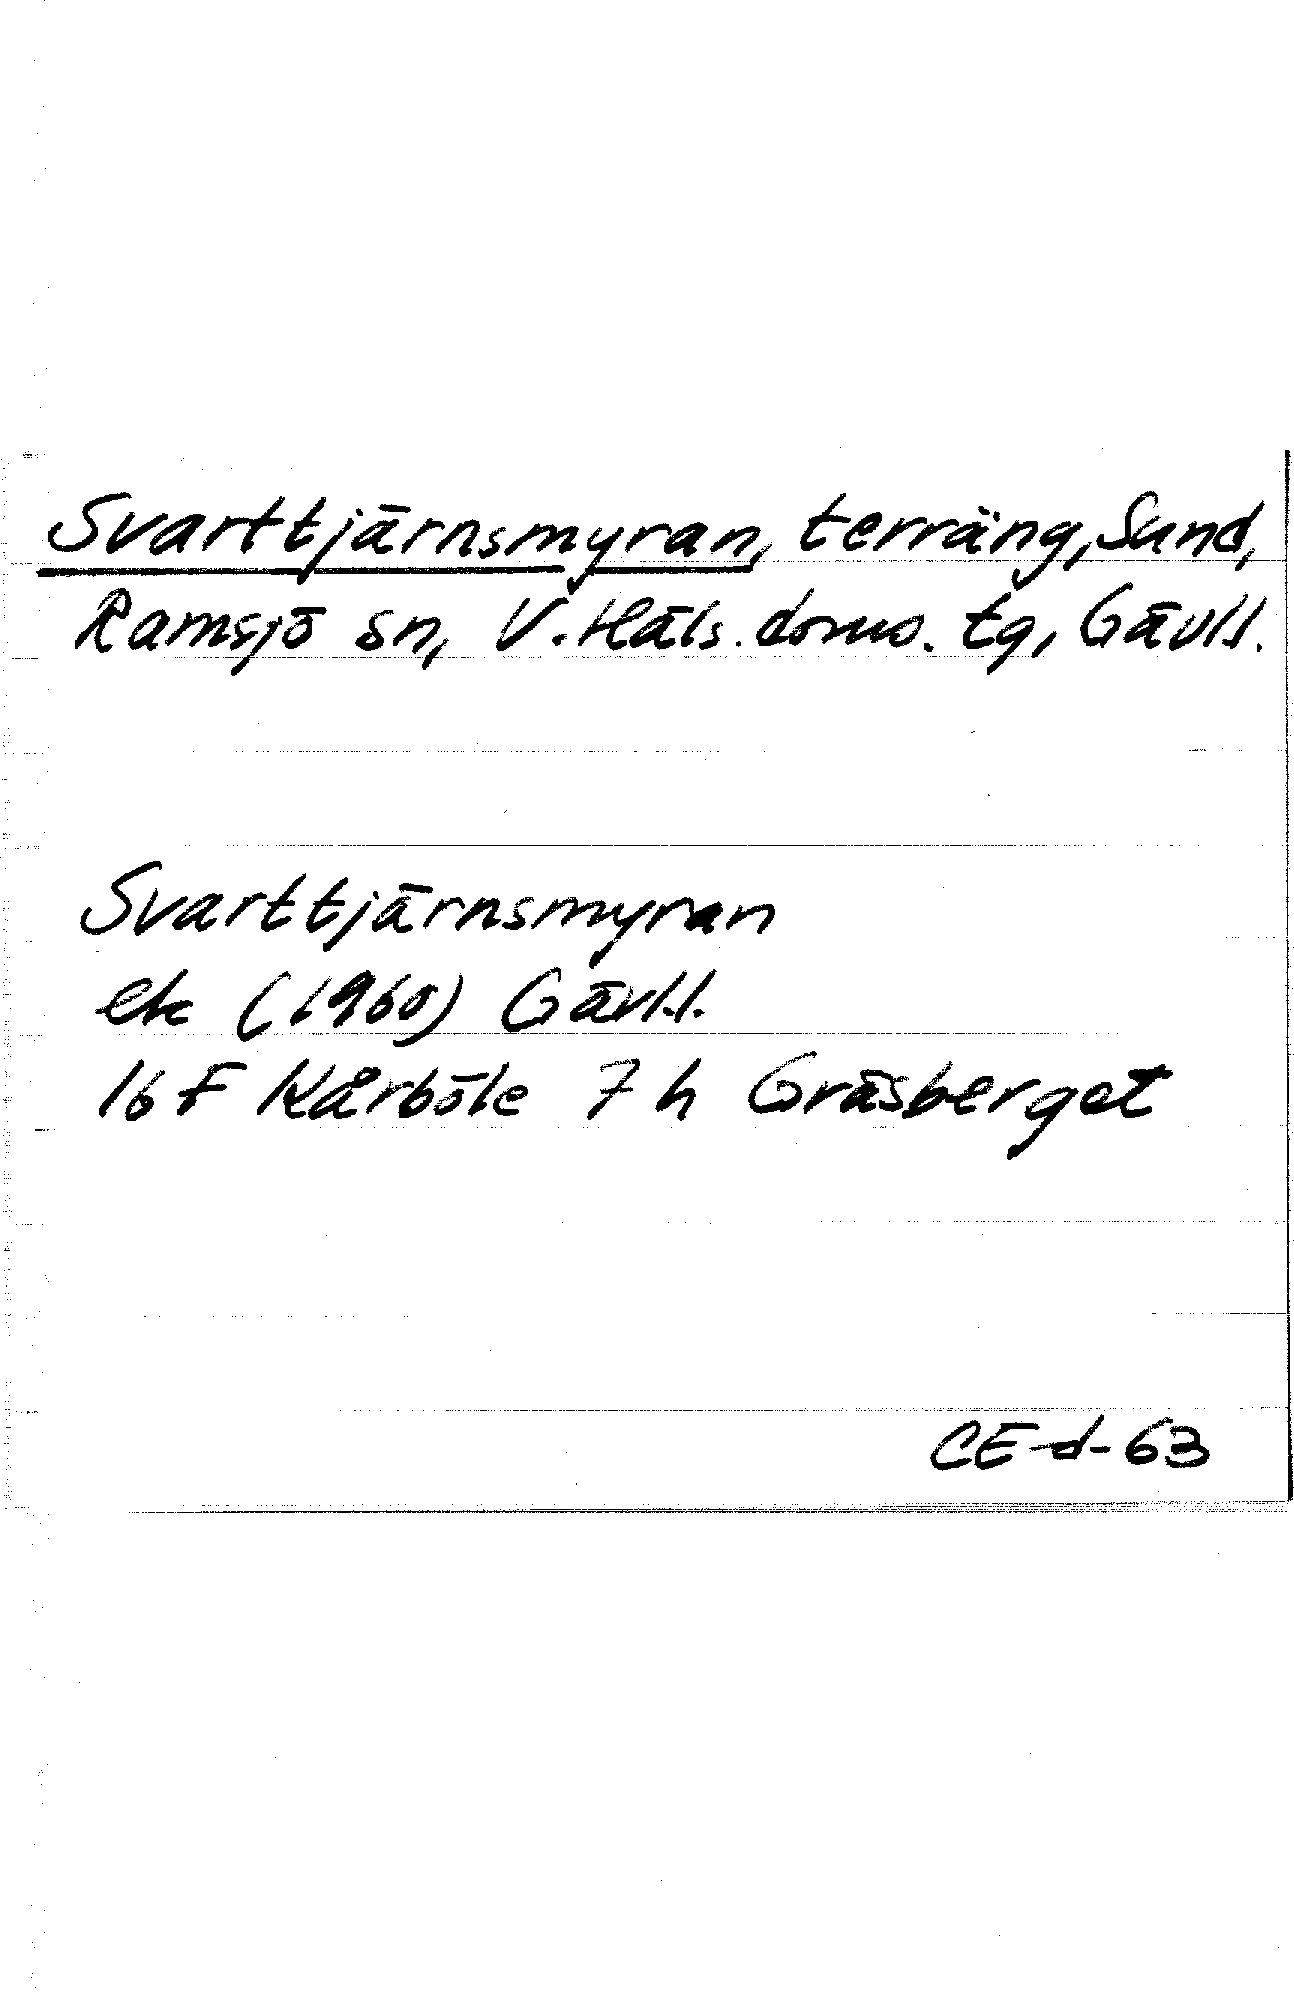 Svarttjärnsmyran, terräng, Sund,
Ramsjö sn, V. Häls. doms. tg, Gävl.l.
Svarttjärnsmyran
ek (1960) Gävl.l.
16 F Kårböle 7 h Gräsberget
CE-d-63